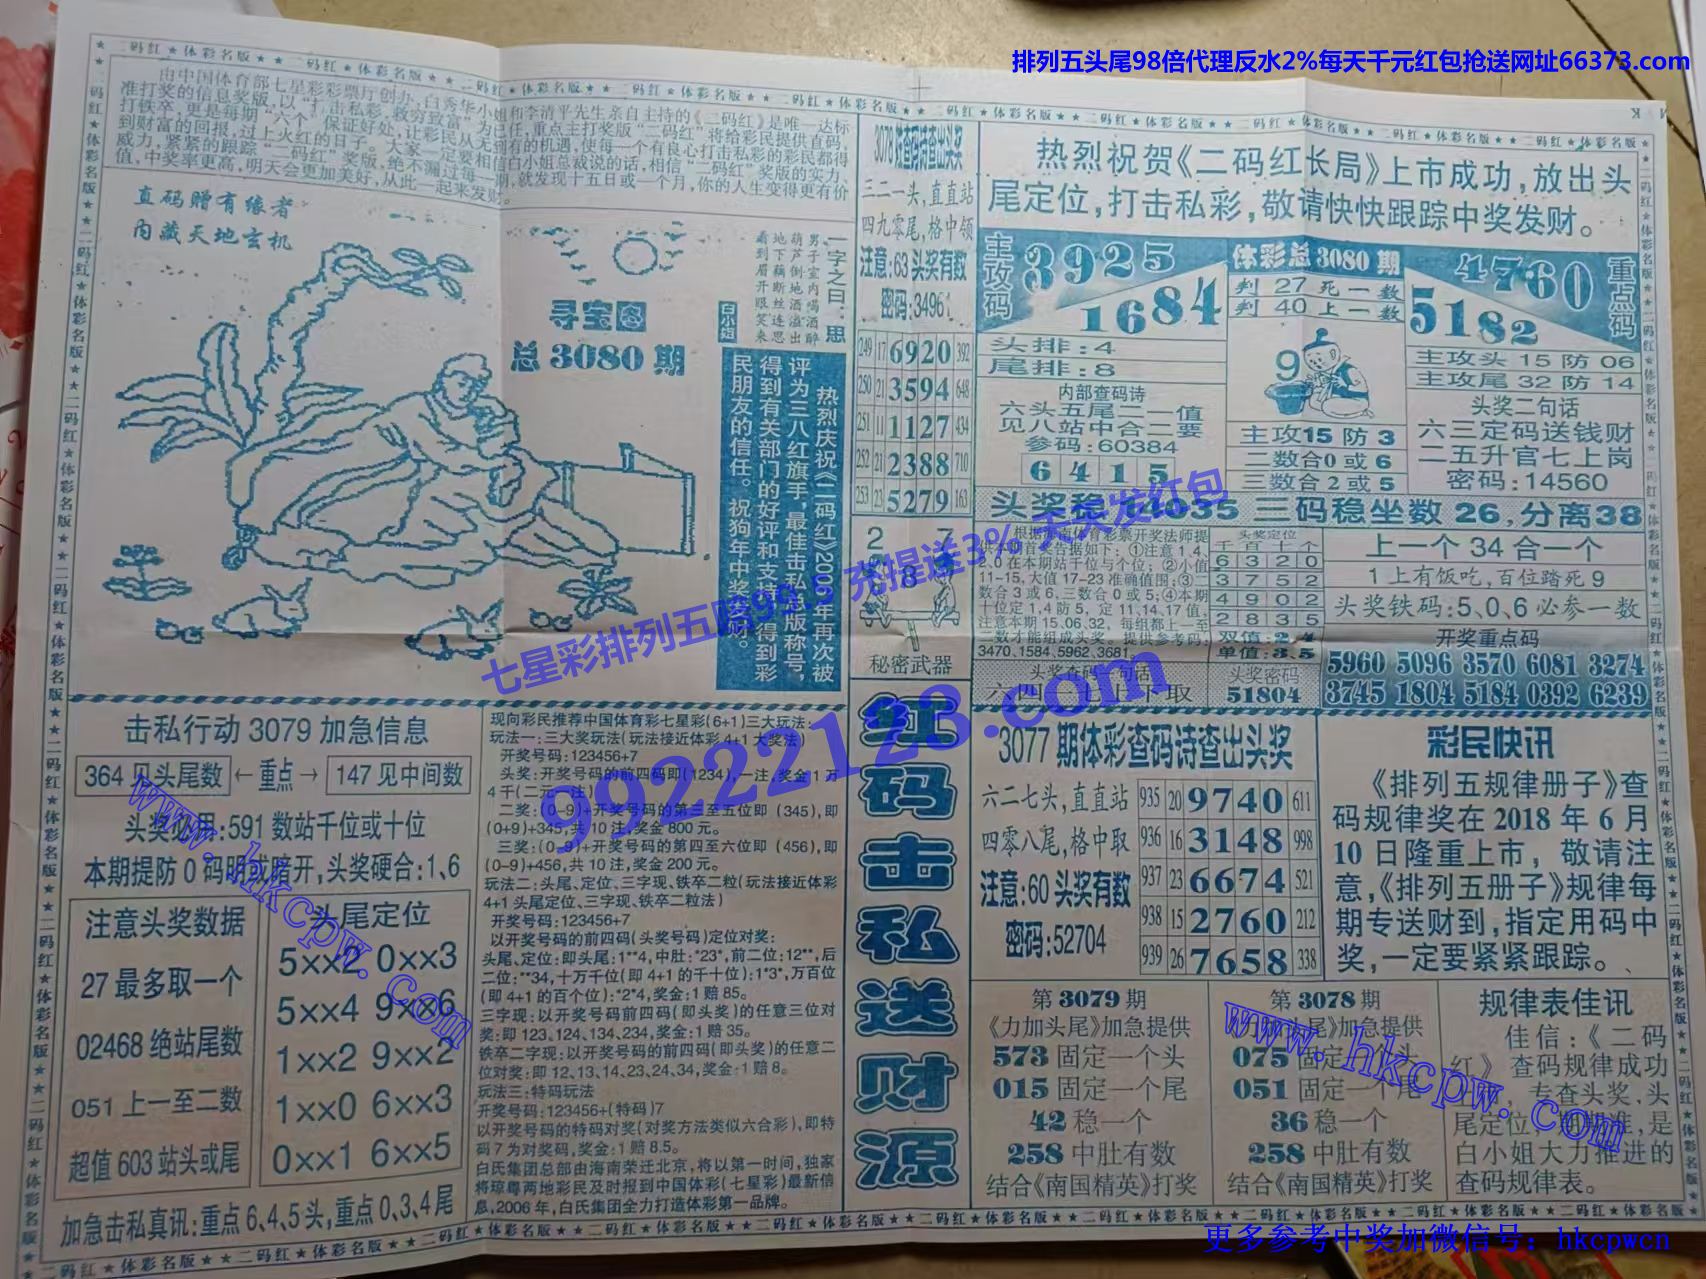 排列五头尾98倍代理反水2%每天千元红包抢送网址66373.com
二码红★体彩名版★★二码红★体彩名版★
由中国体育部七星彩彩票厅创办,白秀华小姐和李清平先生亲自主持的《二码红》是唯一达标
准打奖的信息奖版,以“打击私彩,救穷致富”为己任,重点主打奖版“二码红”将给彩民提供直码,
打铁卒,更是每期“六个”保证好处,让彩民从无到有的机遇,使每一个有良心打击私彩的彩民都得
到财富的回报,过上火红的日子。大家一定要相信白小姐总裁说的话,相信“二码红”奖版的实力,
威力,紧紧的跟踪“二码红”奖版,绝不漏过每一期,就发现十五日或一个月,你的人生变得更有价
值,中奖率更高,明天会更加美好,从此一起来发财。
直码赠有缘者
内藏天地玄机
寻宝图
总3080期
一字之曰:思
男子室内喝酒醉
葫芦倒地酒溢出
地下藕断丝连思
看到眉开眼笑来
白小姐
热烈庆祝《二码红》2006年再次被
评为三八红旗手,最佳击私总版称号,
得到有关部门的好评和支持,得到彩
民朋友的信任。祝狗年中奖发财。
3078诗查码诗查出头奖
三二一头,直直站
四九零尾,格中领
注意:63头奖有数
密码:34961
249 17 6920 392
250 21 3594 648
251 11 1127 434
252 21 2388 710
253 23 5279 163
2 7
8
秘密武器
红码击私送财源
热烈祝贺《二码红长局》上市成功,放出头
尾定位,打击私彩,敬请快快跟踪中奖发财。
主攻码
3925
1684
体彩总3080期
判 27 死一数
判 40 上一数
4760
5182
重点码
头排:4
尾排:8
内部查码诗
六头五尾二一值
见八站中合二要
参码:60384
6 4 1 5
9
主攻15防3
二数合0或6
三数合2或5
主攻头 15 防 06
主攻尾 32 防 14
头奖二句话
六三定码送钱财
二五升官七上岗
密码:14560
头奖稳 64035 三码稳坐数 26,分离38
根据海南体育彩票开奖法师提
供本期首奖告据如下:①注意1、4、
2、0在本期站千位与个位;②小值
11-15,大值17-23准确值围;③二
数合3或6,三数合0或5;④本期
十位定1、4防5,定11、14、17值,
注意本期15、06、32,每组都上一至
二数才能组成头奖。提供参考码:
3470、1584、5962、3681。
头奖定位
千百十个
6 3 2 0
3 7 5 2
4 9 0 2
2 8 3 5
双值:2、4
单值:3、5
头奖密码
51804
上一个 34 合一个
1上有饭吃,百位踏死9
头奖铁码:5、0、6必参一数
开奖重点码
5960 5096 3570 6081 3274
3745 1804 5184 0392 6239
七星彩排列五赔99.5 充提送3% 天天发红包
99222123.com
击私行动 3079 加急信息
364 见头尾数 ←重点→ 147 见中间数
头奖必用:591 数站千位或十位
本期提防 0 码明或暗开,头奖硬合:1、6
注意头奖数据
27 最多取一个
02468 绝站尾数
051 上一至二数
超值 603 站头或尾
头尾定位
5××2 0××3
5××4 9××6
1××2 9××2
1××0 6××3
0××1 6××5
加急击私真讯:重点 6、4、5 头,重点 0、3、4 尾
现向彩民推荐中国体育彩七星彩(6+1)三大玩法:
玩法一:三大奖玩法(玩法接近体彩4+1大奖法)
开奖号码:123456+7
头奖:开奖号码的前四码即(1234),一注,奖金1万
4千(二元一注)
二奖:(0-9)+开奖号码的第三至五位即(345),即
(0+9)+345,共10注,奖金800元。
三奖:(0-9)+开奖号码的第四至六位即(456),即
(0-9)+456,共10注,奖金200元。
玩法二:头尾、定位、三字现、铁卒二粒(玩法接近体彩
4+1头尾定位、三字现、铁卒二粒法)
开奖号码:123456+7
以开奖号码的前四码(头奖号码)定位对奖:
头尾、定位:即头尾:1**4,中肚:*23*,前二位:12**,后
二位:**34,十万千位(即4+1的千十位):1*3*,万百位
(即4+1的百个位):*2*4,奖金:1赔85。
三字现:以开奖号码前四码(即头奖)的任意三位对
奖:即123、124、134、234,奖金:1赔35。
铁卒二字现:以开奖号码的前四码(即头奖)的任意二
位对奖:即12、13、14、23、24、34,奖金:1赔8。
玩法三:特码玩法
开奖号码:123456+(特码)7
以开奖号码的特码对奖(对奖方法类似六合彩),即特
码7为对奖码,奖金:1赔8.5。
白氏集团总部由海南荣迁北京,将以第一时间,独家
将琼粤两地彩民及时报到中国体彩(七星彩)最新信
息,2006年,白氏集团全力打造体彩第一品牌。
3077期体彩查码诗查出头奖
六二七头,直直站
四零八尾,格中取
注意:60头奖有数
密码:52704
935 20 9740 611
936 16 3148 998
937 23 6674 521
938 15 2760 212
939 26 7658 338
彩民快讯
《排列五规律册子》查
码规律奖在 2018 年 6 月
10 日隆重上市,敬请注
意,《排列五册子》规律每
期专送财到,指定用码中
奖,一定要紧紧跟踪。
第 3079 期
《力加头尾》加急提供
573 固定一个头
015 固定一个尾
42 稳一个
258 中肚有数
结合《南国精英》打奖
第 3078 期
《力加头尾》加急提供
075 固定一个头
051 固定一个尾
36 稳一个
258 中肚有数
结合《南国精英》打奖
规律表佳讯
佳信:《二码
红》查码规律成功
,专查头奖、头
尾定位,期期准,是
白小姐大力推进的
查码规律表。
www.hkcpw.com
www.hkcpw.com
更多参考中奖加微信号：hkcpwcn